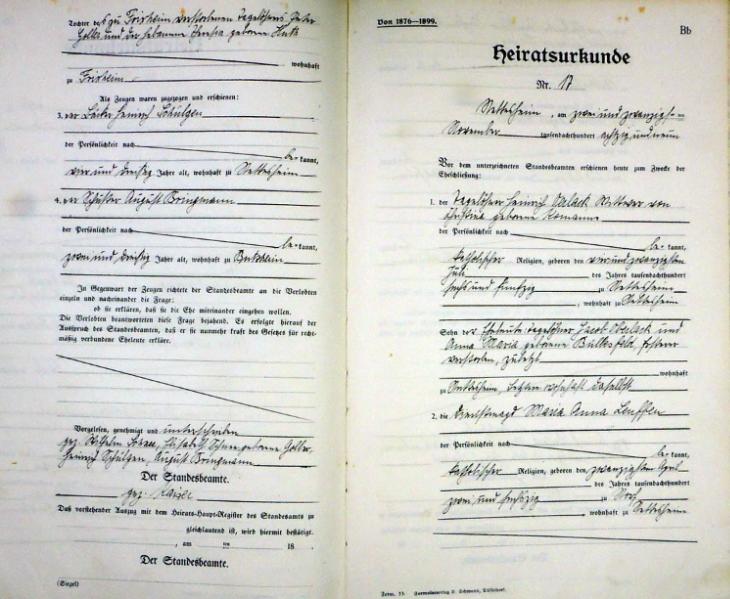 Tochter des zu Frixheim verstorbenen Tagelöhners Peter
und der
wohnhaft
zu Frixheim
Als Zeugen waren zugezogen und erschienen:
3. der Bäcker Heinrich Schülgen
der Persönlichkeit nach
be kannt,
vier und dreißig Jahre alt, wohnhaft zu Nettesheim
4. der Schuster August Bringmann
der Persönlichkeit nach
be kannt,
zwei und dreißig Jahre alt, wohnhaft zu Butzheim
In Gegenwart der Zeugen richtete der Standesbeamte an die Verlobten
einzeln und nacheinander die Frage:
ob sie erklären, daß sie die Ehe miteinander eingehen wollen.
Die Verlobten beantworteten diese Frage bejahend. Es erfolgte hierauf der
Ausspruch des Standesbeamten, daß er sie nunmehr kraft des Gesetzes für recht-
mäßig verbundene Eheleute erkläre.
Vorgelesen, genehmigt und unterschrieben
gez. Wilhelm Elisabeth geborene
Heinrich Schülgen, August Bringmann
Der Standesbeamte.
gez.
Daß vorstehender Auszug mit dem Heirats-Haupt-Register des Standesamts zu
gleichlautend ist, wird hiermit bestätigt.
, am ten 18
Der Standesbeamte.
(Siegel)
Von 1876—1899.
Bb
Heiratsurkunde
Nr. 17
Nettesheim, am zwei und zwanzigsten
November tausendachthundert achtzig und neun
Vor dem unterzeichneten Standesbeamten erschienen heute zum Zwecke der
Eheschließung:
1. der Tagelöhner Heinrich Wittwer von
Christina geborene
der Persönlichkeit nach
be kannt,
katholischer Religion, geboren den vier und zwanzigsten
Juli des Jahres tausendachthundert
sechs und fünfzig zu Nettesheim
, wohnhaft zu Nettesheim
Sohn der Eheleute Tagelöhner Jacob und
Anna Maria geborene ersterer
verstorben, zuletzt
wohnhaft
zu Nettesheim, letztere wohnhaft daselbst
2. die Dienstmagd Maria Anna
der Persönlichkeit nach
be kannt,
katholischer Religion, geboren den zwanzigsten April
des Jahres tausendachthundert
zwei und sechszig zu
, wohnhaft zu Nettesheim
Form. 33. Formularverlag L. Schwann, Düsseldorf.